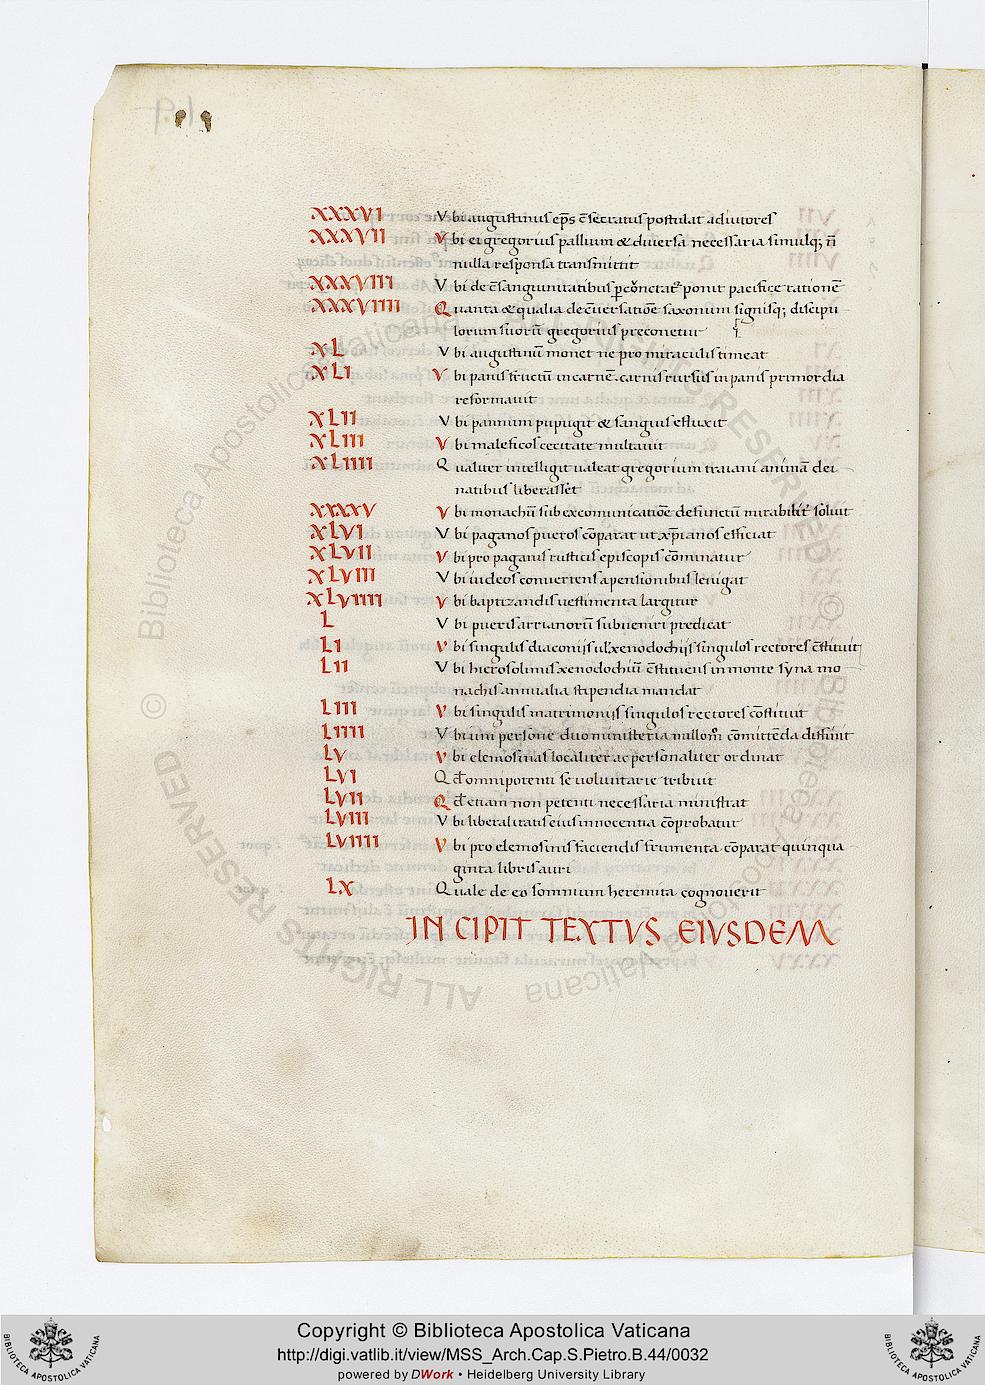 XXXVI Vbi augustinus ep̄s c̄secratus postulat adiutores
XXXVII Vbi ei gregorius pallium & diuersa necessaria simulq; n̄
nulla responsa transmittit
XXXVIII Vbi de c̄sanguinitatibus ponit pacifice rationē
XXXVIIII Quanta & qualia de c̄uersatiōe saxonum signisq; discipu
lorum suorū gregorius preconetur
XL Vbi augustinū monet ne pro miraculis timeat
XLI Vbi panis fructū in carnē. carnis rursus in panis primordia
reformauit
XLII Vbi pannum pupugit & sanguis effluxit
XLIII Vbi maleficos cecitate multauit
XLIIII Qualiter intelligit ualeat gregorium traiani animā dei
natibus liberasset
XXXXV Vbi monachū sub excomunicatiōe defunctū mirabilit̄ soluit
XLVI Vbi paganos pueros cōparat ut xp̄ianos efficiat
XLVII Vbi pro paganis rusticis episcopis cōminatur
XLVIII Vbi iudeos conuertens apensionibus leuigat
XLVIIII Vbi baptizandis uestimenta largitur
L Vbi pueris arrianorū subueniri predicat
LI Vbi singulis diaconijs ul' xenodochijs singulos rectores c̄stituit
LII Vbi hierosolimis xenodochiū c̄stituens in monte syna mo
nachis annualia stipendia mandat
LIII Vbi singulis matrimonijs singulos rectores cōstituit
LIIII Vbi uni persone duo ministeria nullom̄ cōmittēda diffinit
LV Vbi elemosinas localiter ac personaliter ordinat
LVI Qd̄ omnipotenti se uoluntarie tribuit
LVII Qd̄ etiam non petenti necessaria ministrat
LVIII Vbi liberalitatis eius innocentia cōprobatur
LVIIII Vbi pro elemosinis faciendis frumenta cōparat quinqua
ginta libris auri
LX Quale de eo somnium heremita cognouerit
INCIPIT TEXTVS EIVSDEM
© Biblioteca Apostolica Vaticana ALL RIGHTS RESERVED © Biblioteca Apostolica Vaticana ALL RIGHTS RESERVED
Copyright © Biblioteca Apostolica Vaticana
http://digi.vatlib.it/view/MSS_Arch.Cap.S.Pietro.B.44/0032
powered by DWork • Heidelberg University Library
BIBLIOTECA APOSTOLICA VATICANA
BIBLIOTECA APOSTOLICA VATICANA